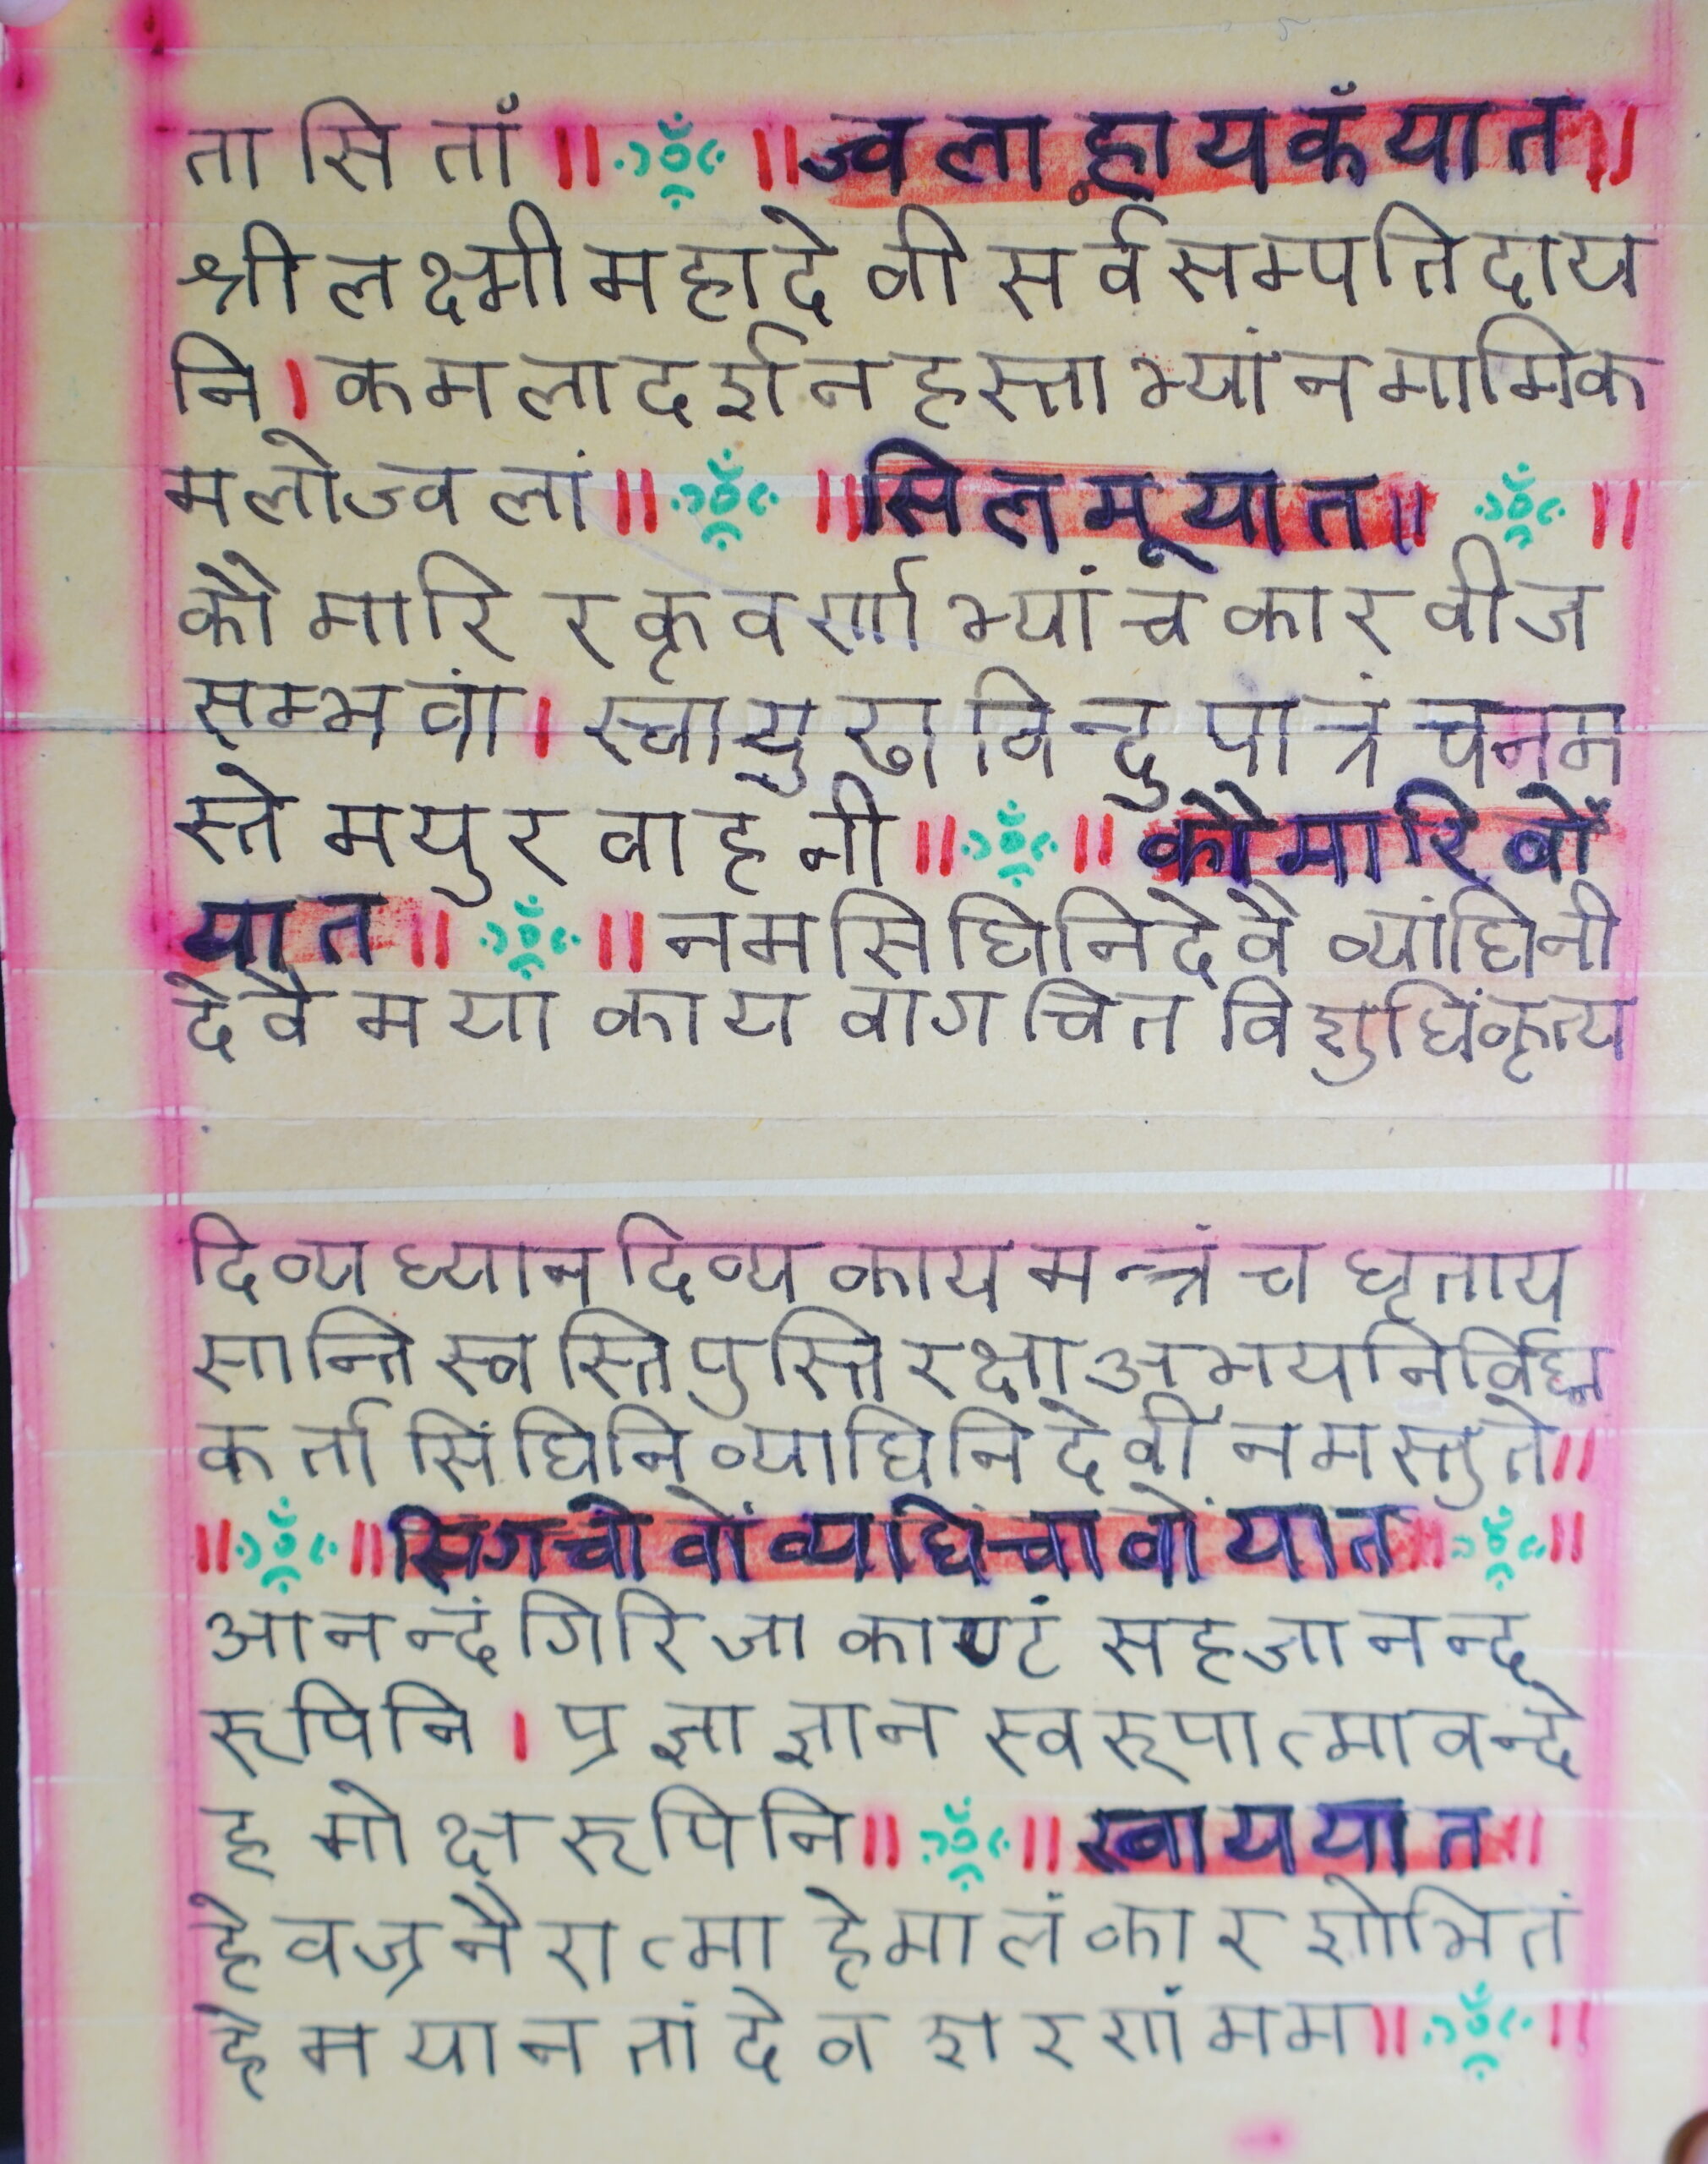 तासितां ॥ ॥ ज्वलान्हायकँयात ॥
श्रीलक्ष्मीमहादेवीसर्वसम्पतिदाय
नि । कमलादर्शनहस्ताभ्यांनमामिक
मलोज्वलां ॥ ॥ सिलमूयात ॥ ॥
कौमारिरक्तवर्णाभ्यांचकारवीज
सम्भवां । स्वायुढाविन्दुपात्रंचनम
स्ते मयुरवाहनी ॥ ॥ कौमारिवों
यात ॥ ॥ नमसिंघिनिदेवै व्यांघिनी
देवै मया काय वागचित विशुधिंकृत्य
दिव्य ध्यान दिव्य काय मन्त्रं च धृताय
सान्तिस्वस्तिपुस्तिरक्षाअभयनिर्विघ्न
कर्तासिंघिनिव्याघिनिदेवीं नमस्तुते ॥
॥ ॥ सिंगचोवोंव्यघिंचावोंयात ॥ ॥
आनन्दंगिरिजाकाण्टं सहजानन्द
रूपिनि । प्रज्ञाज्ञान स्वरूपात्मावन्दे
ह मोक्षरूपिनि ॥ ॥ ख्वाययात ॥
हेवज्रनैरात्मा हेमालंकार शोभितं
हेमयानतांदेव शरणांमम ॥ ॥